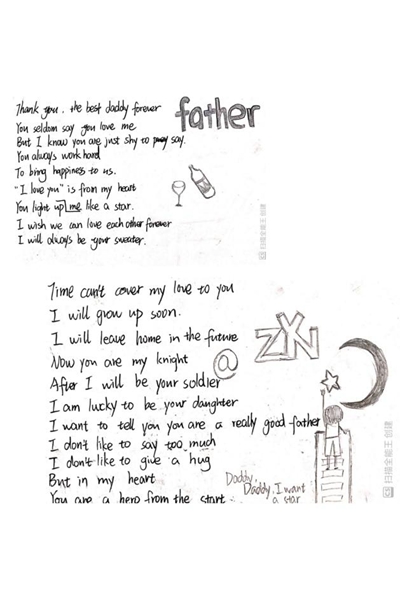 father
Thank you. the best daddy forever
You seldom say you love me
But I know you are just shy to say.
You always work hard
To bring happiness to us.
"I love you" is from my heart
You light up me like a star.
I wish we can love each other forever
I will always be your sweater.
扫描全能王 创建
Time can't cover my love to you
I will grow up soon.
I will leave home in the future
Now you are my knight
After I will be your soldier
I am lucky to be your daughter
I want to tell you you are a really good father
I don't like to say too much
I don't like to give a hug
But in my heart
You are a hero from the start
@
ZXN
Daddy.
Daddy. I want
a star
CS 扫描全能王 创建